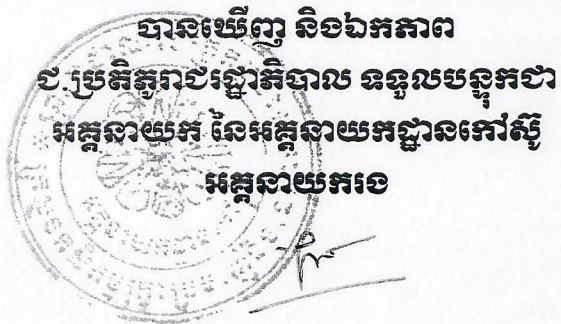 បានឃើញ និងឯកភាព
ជ.ប្រតិភូរាជរដ្ឋាភិបាល ទទួលបន្ទុកជា
អគ្គនាយក នៃអគ្គនាយកដ្ឋានកៅស៊ូ
អគ្គនាយករង